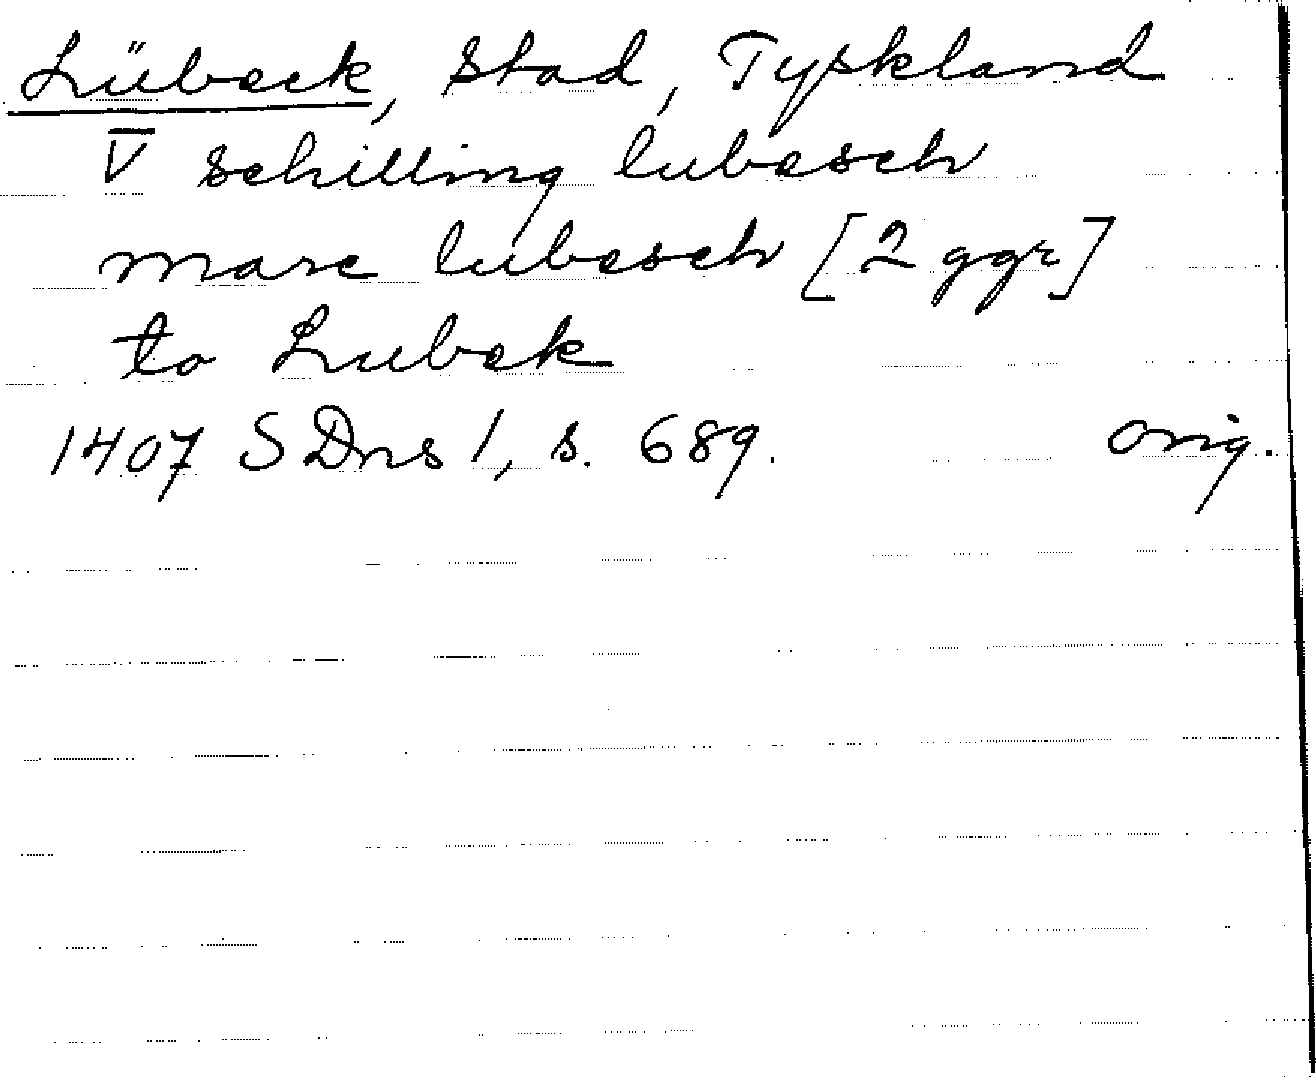 Lübeck, stad, Tyskland
V schilling lubesch
marc lubesch [2 ggr]
to Lubek
1407 SDns 1, s. 689. orig.